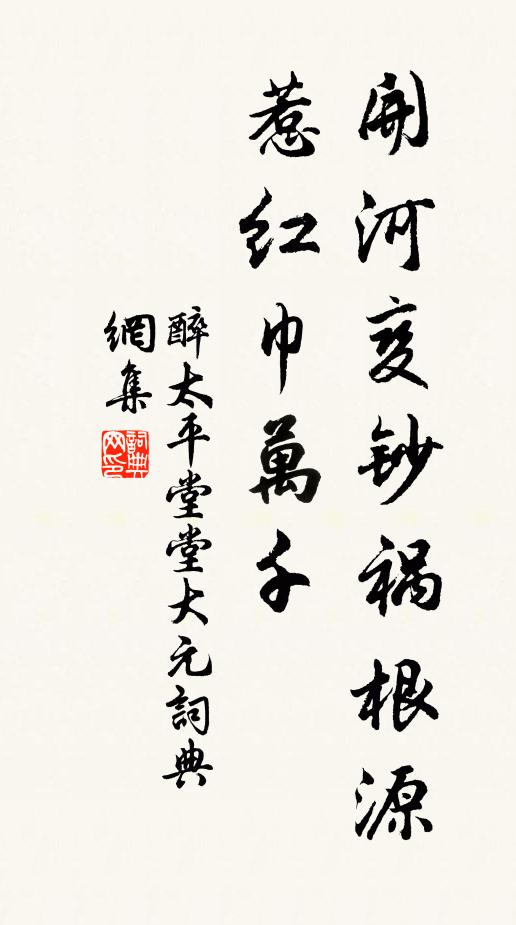 開河變鈔禍根源
惹紅巾萬千
醉太平堂堂大元詞典
網集
詞典網印